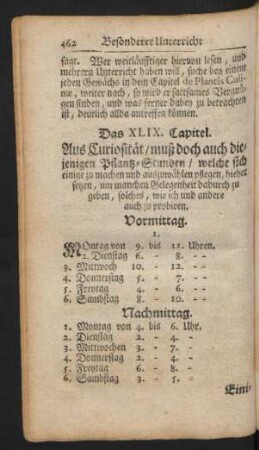 462 Besonderer Unterricht
sagt. Wer weitläufftiger hiervon lesen, und
mehrern Unterricht haben will, suche bey einem
jeden Gewächs in dem Capitel de Plantis Culi-
næ, weiter nach, so wird er sattsames Vergnü-
gen finden, und was ferner dabey zu betrachten
ist, deutlich allda antreffen können.
Das XLIX. Capitel.
Aus Curiosität / muß doch auch die-
jenigen Pflantz-Stunden / welche sich
einige zu machen und auszuwählen pflegen, hieher
setzen, um manchen Gelegenheit dadurch zu
geben, solches, wie ich und andere
auch zu probiren.
Vormittag.
1.
Montag von 9. bis 11. Uhren.
2. Dienstag 6. - 8. - -
3. Mittwoch 10. - 12. - -
4. Donnerstag 5. - 7. - -
5. Freytag 4. - 6. - -
6. Sambstag 8. - 10. - -
Nachmittag.
1. Montag von 4. bis 6. Uhr.
2. Dienstag 2. - 4. - -
3. Mittwochen 5. - 7. - -
4. Donnerstag 2. - 4. - -
5. Freytag 6. - 8. - -
6. Sambstag 3. - 5. - -
Eini-